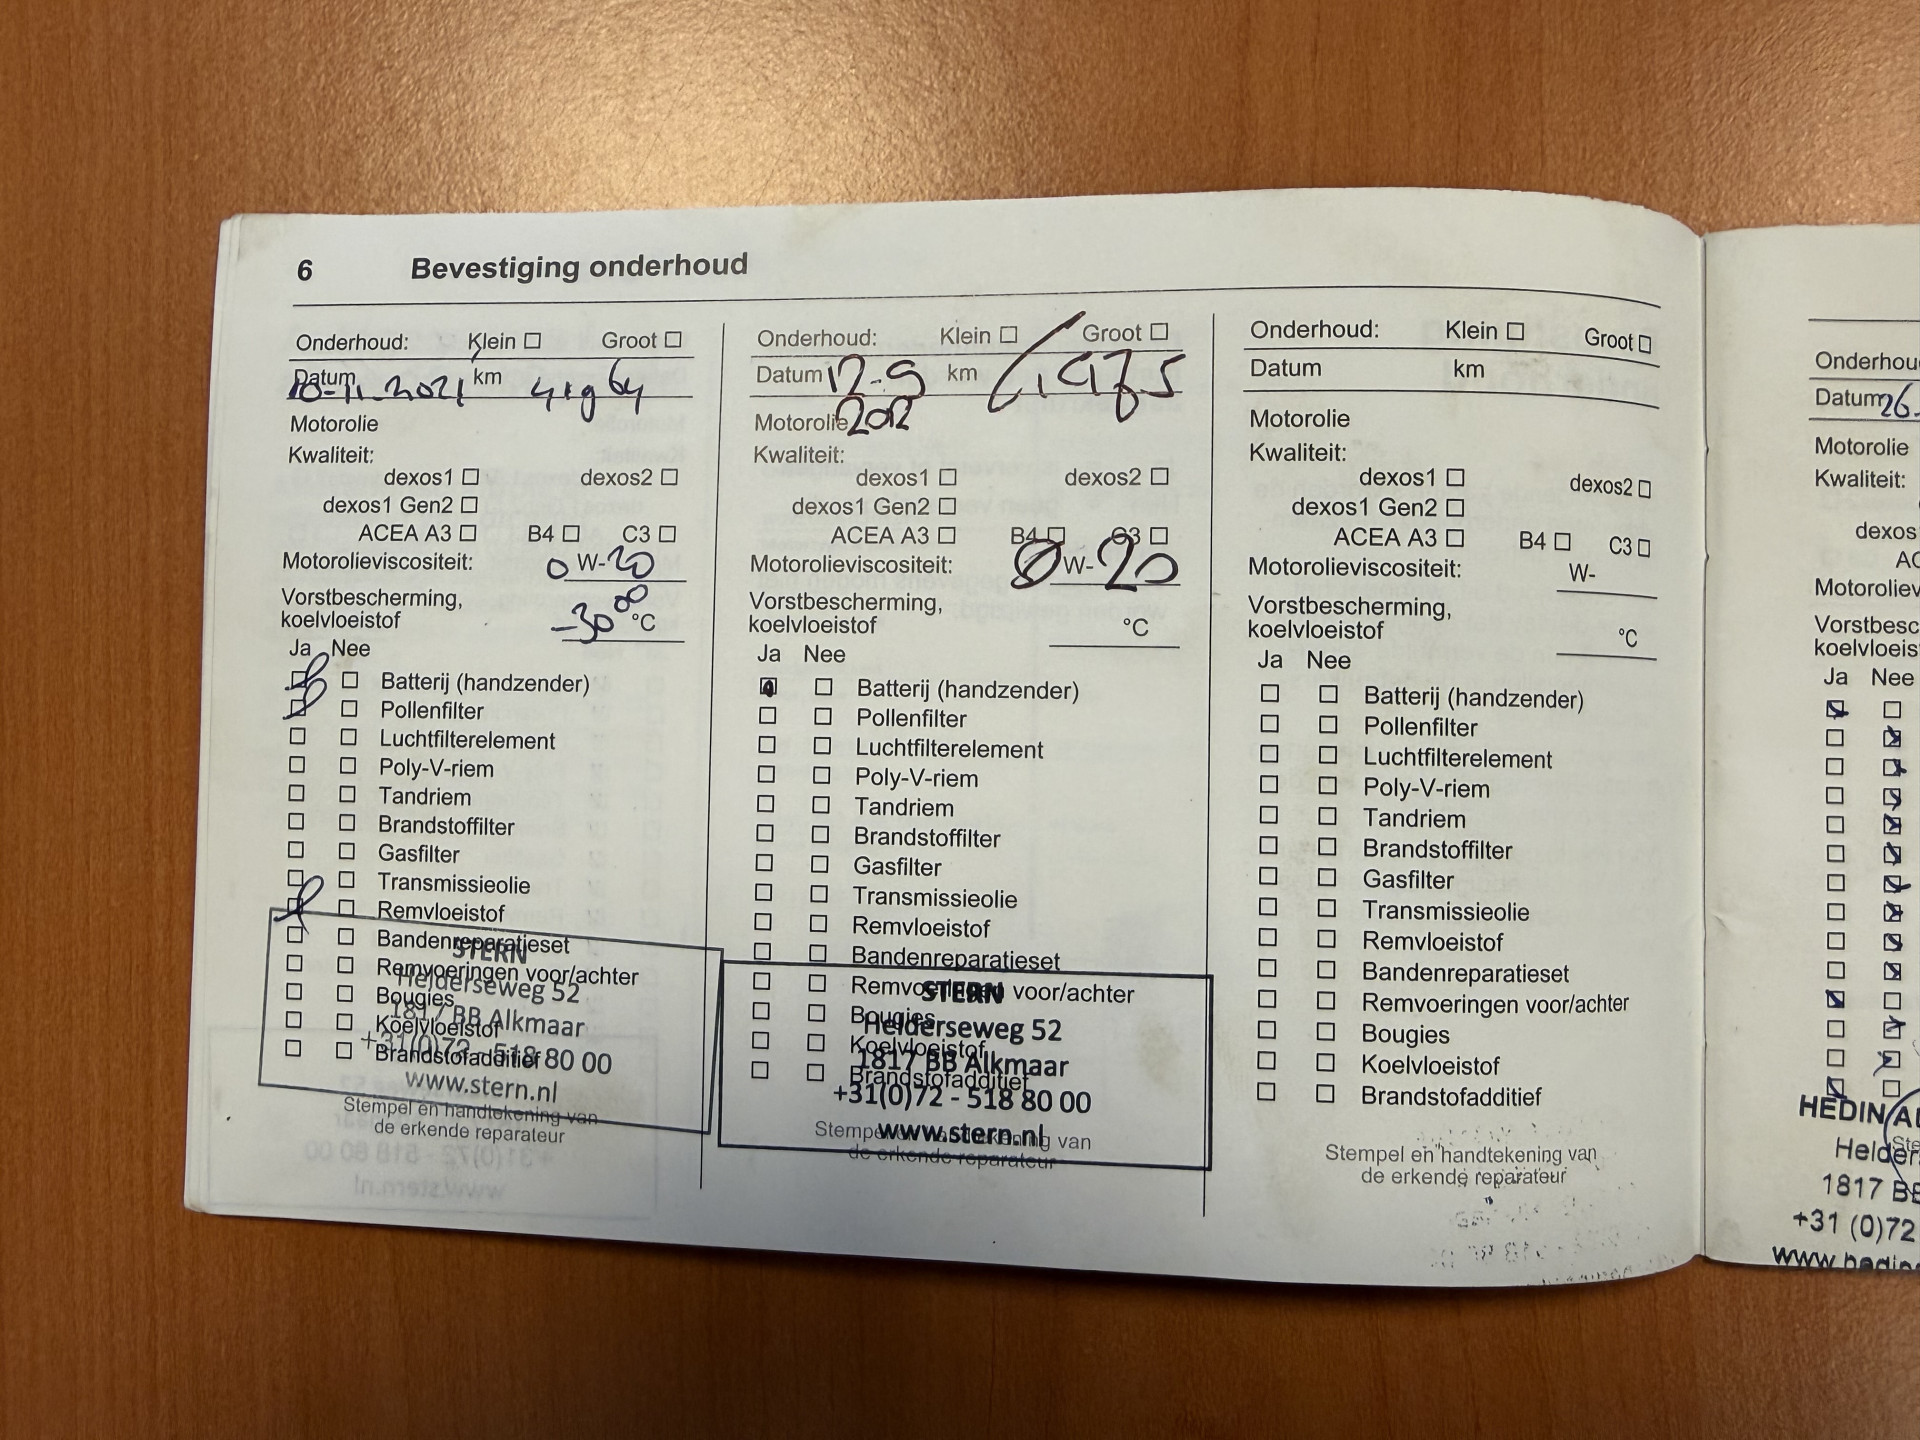 6 Bevestiging onderhoud
Onderhoud: Klein Groot
Datum 10-11-2021 km 41964
Motorolie
Kwaliteit:
dexos1 dexos2
dexos1 Gen2
ACEA A3 B4 C3
Motorolieviscositeit: 0 W-20
Vorstbescherming,
koelvloeistof -30 °C
Ja Nee
Batterij (handzender)
Pollenfilter
Luchtfilterelement
Poly-V-riem
Tandriem
Brandstoffilter
Gasfilter
Transmissieolie
Remvloeistof
Bandenreparatieset
Remvoeringen voor/achter
Bougies
Koelvloeistof
Brandstofadditief
STERN
Helderseweg 52
1817 BB Alkmaar
+31(0)72 - 518 80 00
www.stern.nl
Stempel en handtekening van
de erkende reparateur
Onderhoud: Klein Groot
Datum 12-9 km
Motorolie
Kwaliteit:
dexos1 dexos2
dexos1 Gen2
ACEA A3 B4 C3
Motorolieviscositeit: 0 W-20
Vorstbescherming,
koelvloeistof °C
Ja Nee
Batterij (handzender)
Pollenfilter
Luchtfilterelement
Poly-V-riem
Tandriem
Brandstoffilter
Gasfilter
Transmissieolie
Remvloeistof
Bandenreparatieset
Remvoeringen voor/achter
Bougies
Koelvloeistof
Brandstofadditief
STERN
Helderseweg 52
1817 BB Alkmaar
+31(0)72 - 518 80 00
www.stern.nl
Stempel en handtekening van
de erkende reparateur
Onderhoud: Klein Groot
Datum km
Motorolie
Kwaliteit:
dexos1 dexos2
dexos1 Gen2
ACEA A3 B4 C3
Motorolieviscositeit: W-
Vorstbescherming,
koelvloeistof °C
Ja Nee
Batterij (handzender)
Pollenfilter
Luchtfilterelement
Poly-V-riem
Tandriem
Brandstoffilter
Gasfilter
Transmissieolie
Remvloeistof
Bandenreparatieset
Remvoeringen voor/achter
Bougies
Koelvloeistof
Brandstofadditief
Stempel en handtekening van
de erkende reparateur
Onderhou
Datum 26-
Motorolie
Kwaliteit:
dexos
AC
Motoroliev
Vorstbesc
koelvloeis
Ja Nee
HEDIN AU
Helder
1817 BB
+31 (0)72
www.hedin